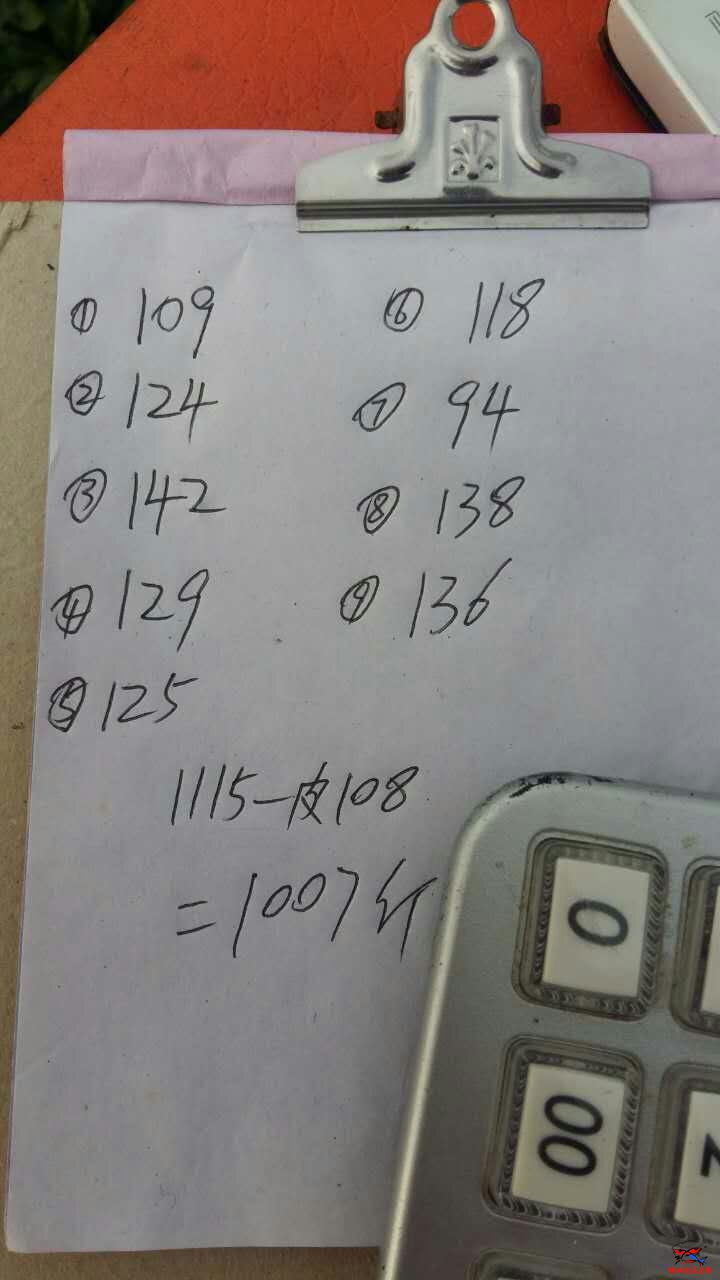 ① 109
② 124
③ 142
④ 129
⑤ 125
⑥ 118
⑦ 94
⑧ 138
⑨ 136
1115－皮108
=1007斤
0
00